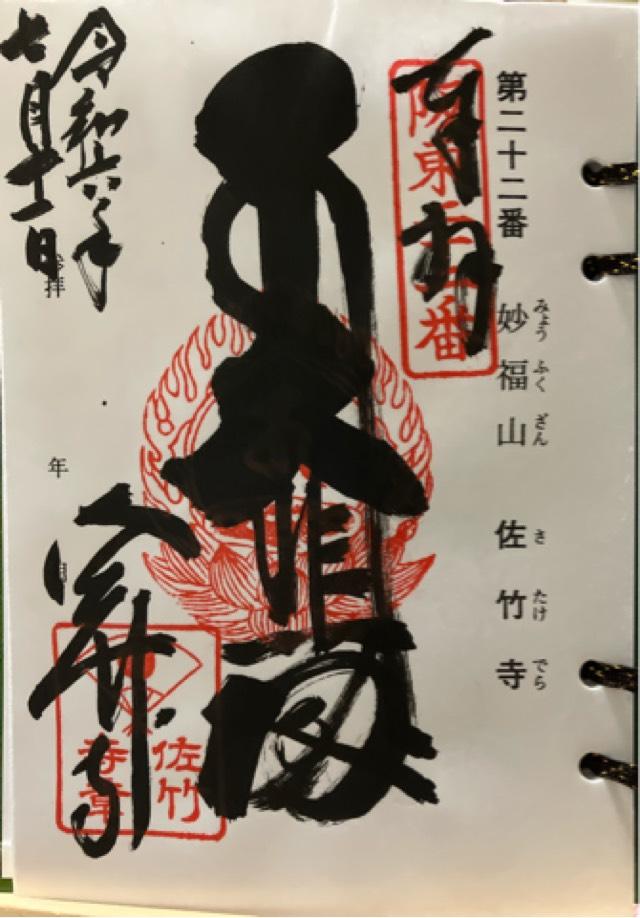 第二十二番
妙福山 佐竹寺
みょう ふく ざん さ たけ でら
奉拝
阪東 二番
大悲閣
令和六年
七月十一日
参拝
年
月
佐竹寺
佐竹
寺章